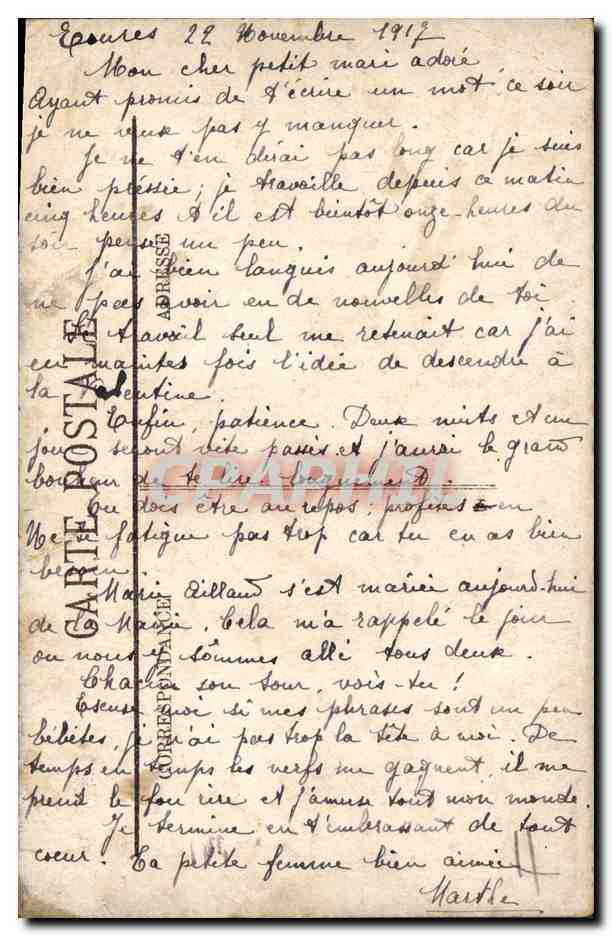 Tours 22 Novembre 1917
Mon cher petit mari adoré
Ayant promis de t'écrire un mot ce soir
je ne veux pas y manquer.
Je ne t'en dirai pas long car je suis
bien préssée; je travaille depuis ce matin
cinq heures et il est bientôt onze-heures du
soir pense un peu.
J'ai bien languis aujourd'hui de
ne pas avoir eu de nouvelles de toi
Le travail seul me retenait car j'ai
eu maintes fois l'idée de descendre à
la
Enfin, patience. Deux nuits et un
jour seront vite passés et j'aurai le grand
bonheur de te lire longuement.
Tu dois être au repos; profites-en
Ne te fatigue pas trop car tu en as bien
besoin.
Marie Aillaud s'est mariée aujourd-hui
de la Mairie. Cela m'a rappelé le jour
ou nous y sommes allé tous deux.
Chacun son tour, vois-tu!
Escuse moi si mes phrases sont un peu
bébêtes, je n'ai pas trop la tête à moi. De
temps en temps les nerfs me gagnent, il me
prend le fou rire et j'amuse tout mon monde.
Je termine en t'embrassant de tout
coeur. Ta petite femme bien aimée
Marthe
CARTE POSTALE
ADRESSE
CORRESPONDANCE
CPAPHIL